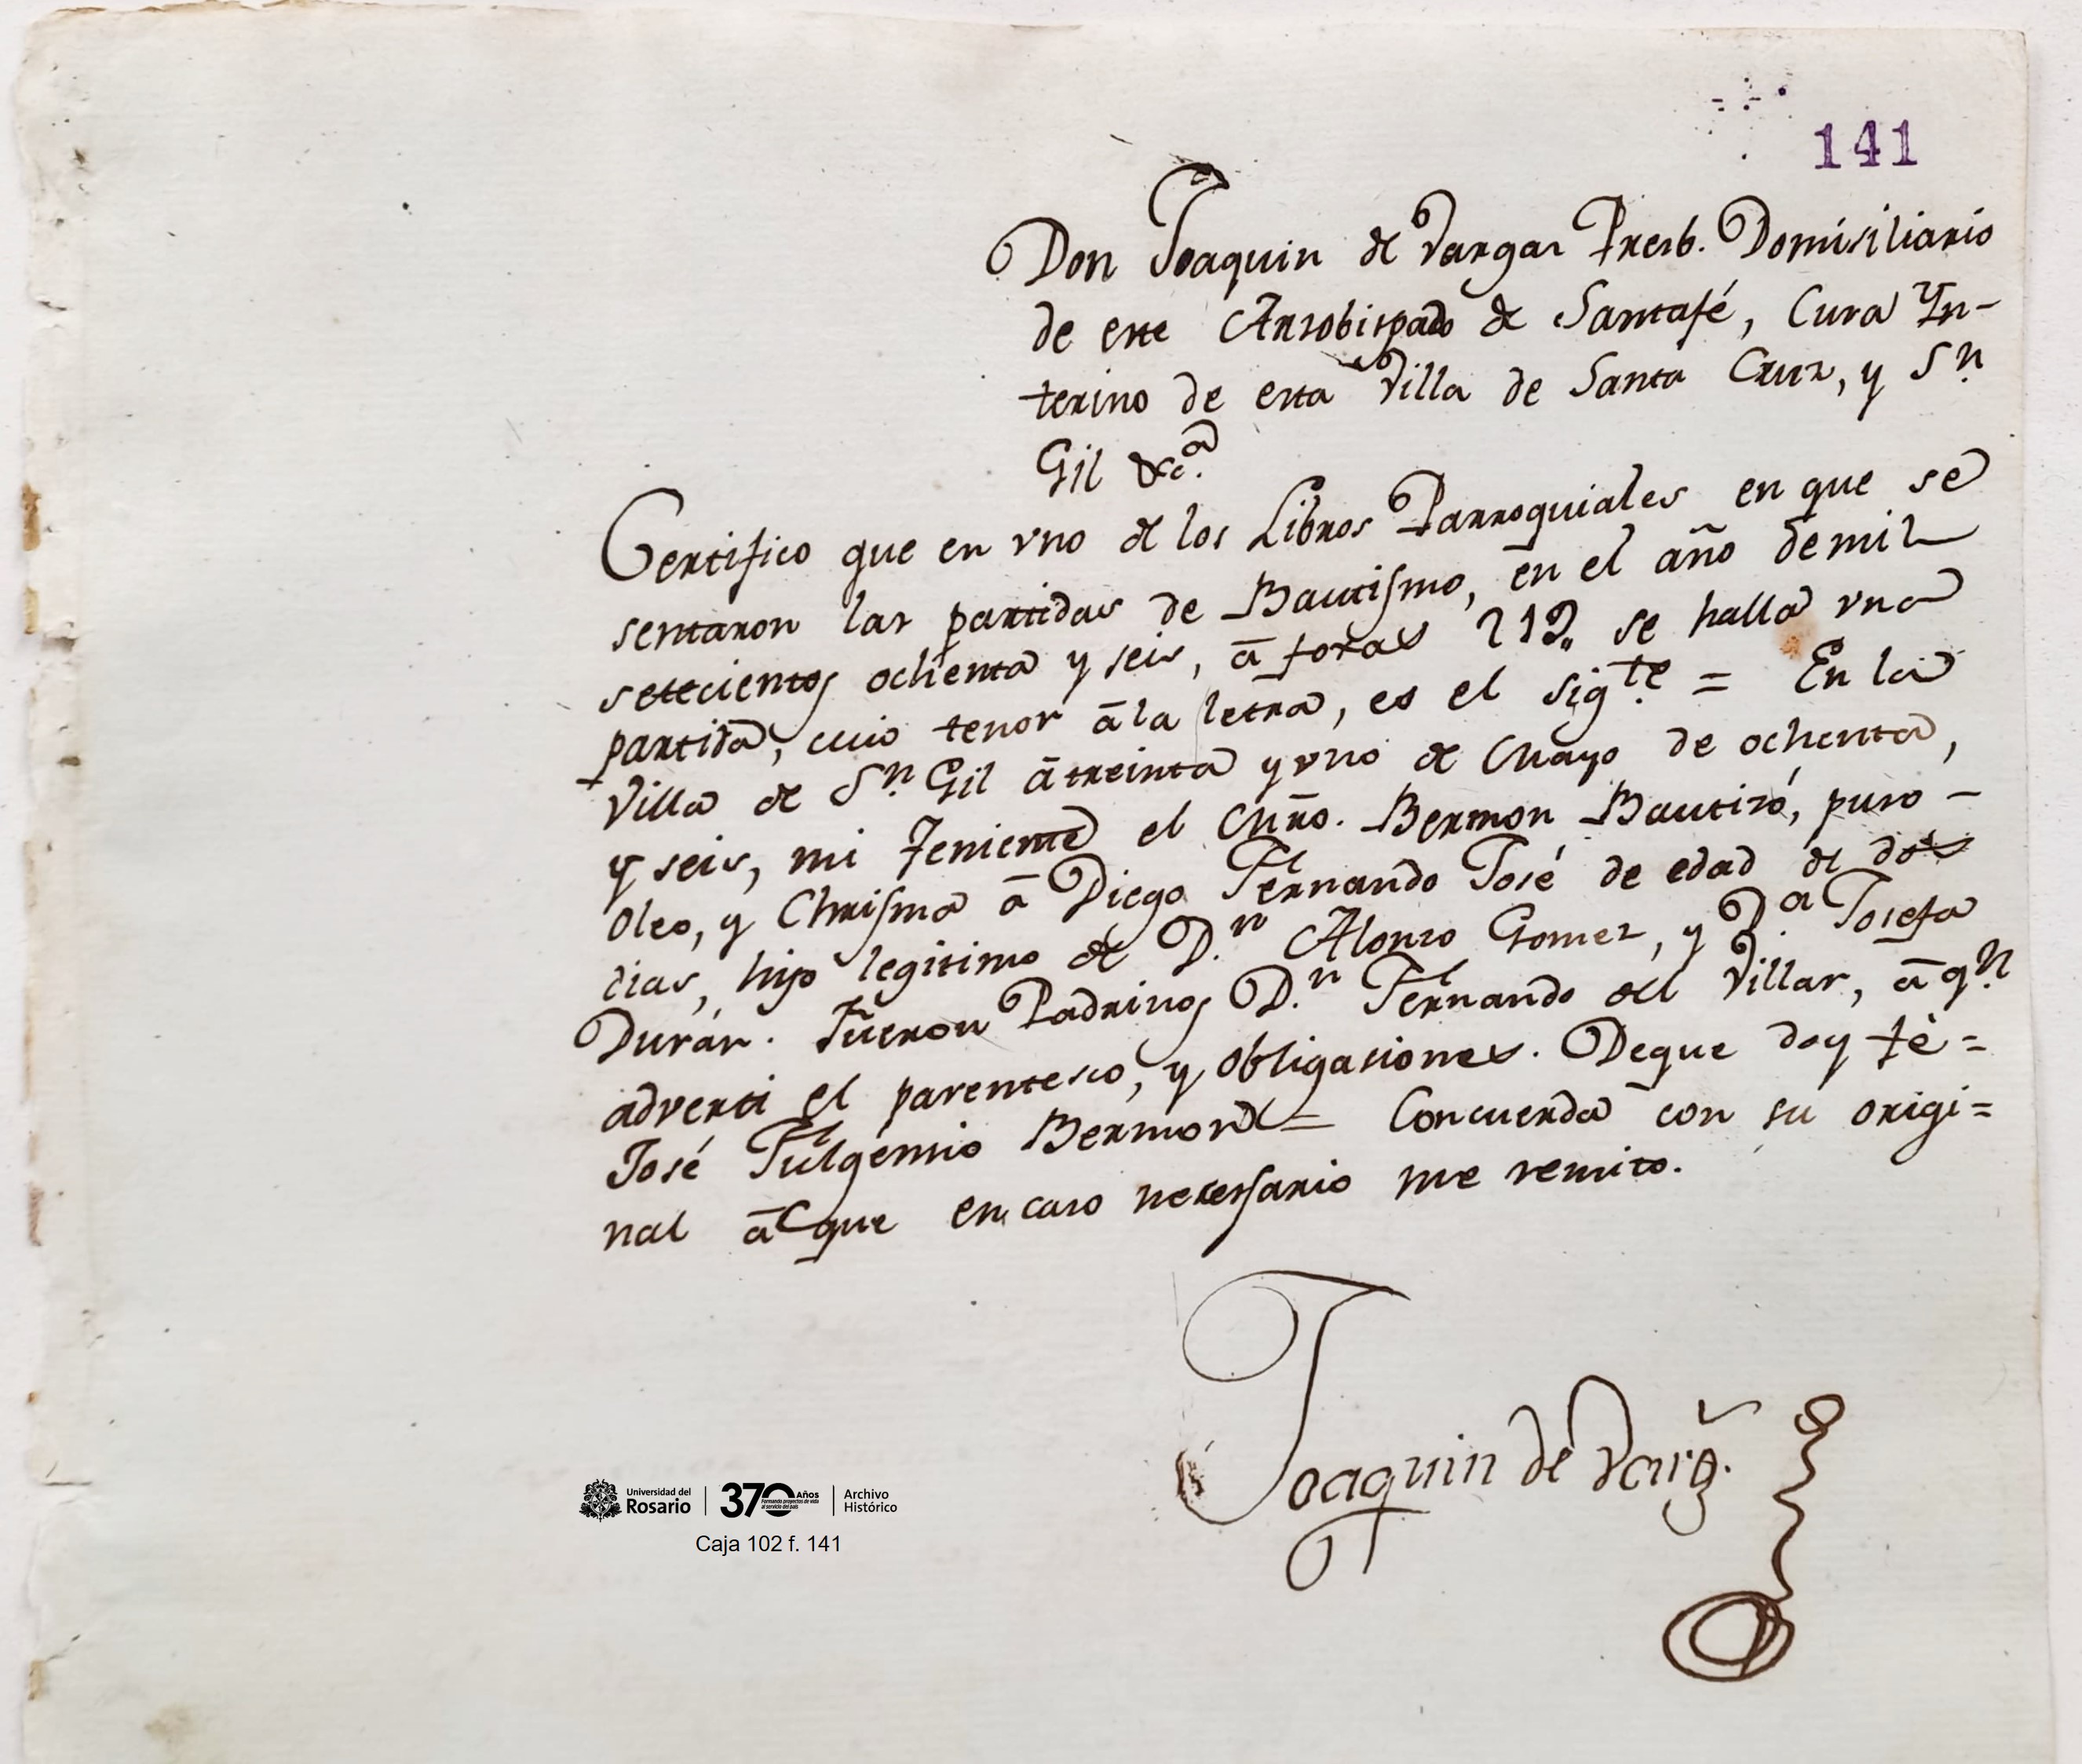 141
Don Joaquin de Vargas Presb. Domisiliario
de este Arzobispado de Santafé, Cura Yn-
terino de esta Villa de Santa Cruz, y Sn.
Gil &c.a
Certifico que en vno de los Libros Parroquiales en que se
sentaron las partidas de Bautismo, en el año demil
setecientos ochenta y seis, ā foxas 212,, se halla vna
partida, cuio tenor ā la letra, es el sigte. = En la
Villa de Sn. Gil ā treinta y vno de Mayo de ochenta,
y seis, mi Teniente el Mr̃o. Bermon Bautizó, puso -
Oleo, y Chrisma ā Diego Fernando José de edad de dos
dias, hijo legitimo de D.n Alonzo Gomez, y D.a Josefa
Durán. Fueron Padrinos D.n Fernando del Villar, ā qn.
adverti el parentesco, y obligasiones. Deque doy fè =
José Fulgensio Bermond = Concuerda con su origi=
nal āl que en caso nesessario me remito.
Joaquin de Varg.s
Universidad del Rosario | 370 Años Formando proyectos de vida al servicio del país | Archivo Histórico
Caja 102 f. 141